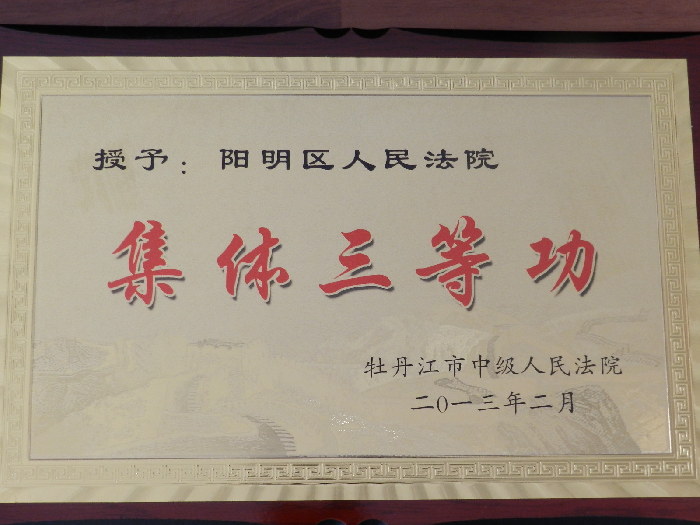 授予：阳明区人民法院
集体三等功
牡丹江市中级人民法院
二0一三年二月